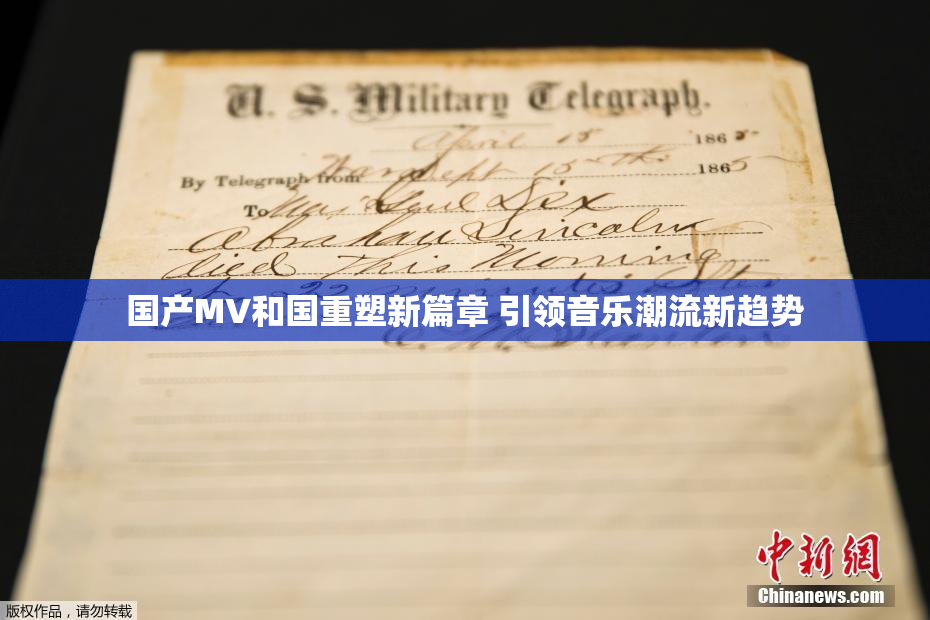 U. S. Military Telegraph.
April 15 1865
By Telegraph from War Dept 15th 1865
To Maj Genl Dix
Abraham Lincoln
died This Morning
at 22 minutes after
国产MV和国重塑新篇章 引领音乐潮流新趋势
中新网
Chinanews.com
版权作品,请勿转载